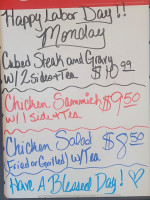 Happy Labor Day!!
Monday
Cubed Steak and Gravy
w/ 2 sides + Tea $10.99
Chicken Sammich $9.50
w/ 1 side + Tea
Chicken Salad $8.50
(Fried or Grilled) w/ Tea
Have A Blessed Day! ♡